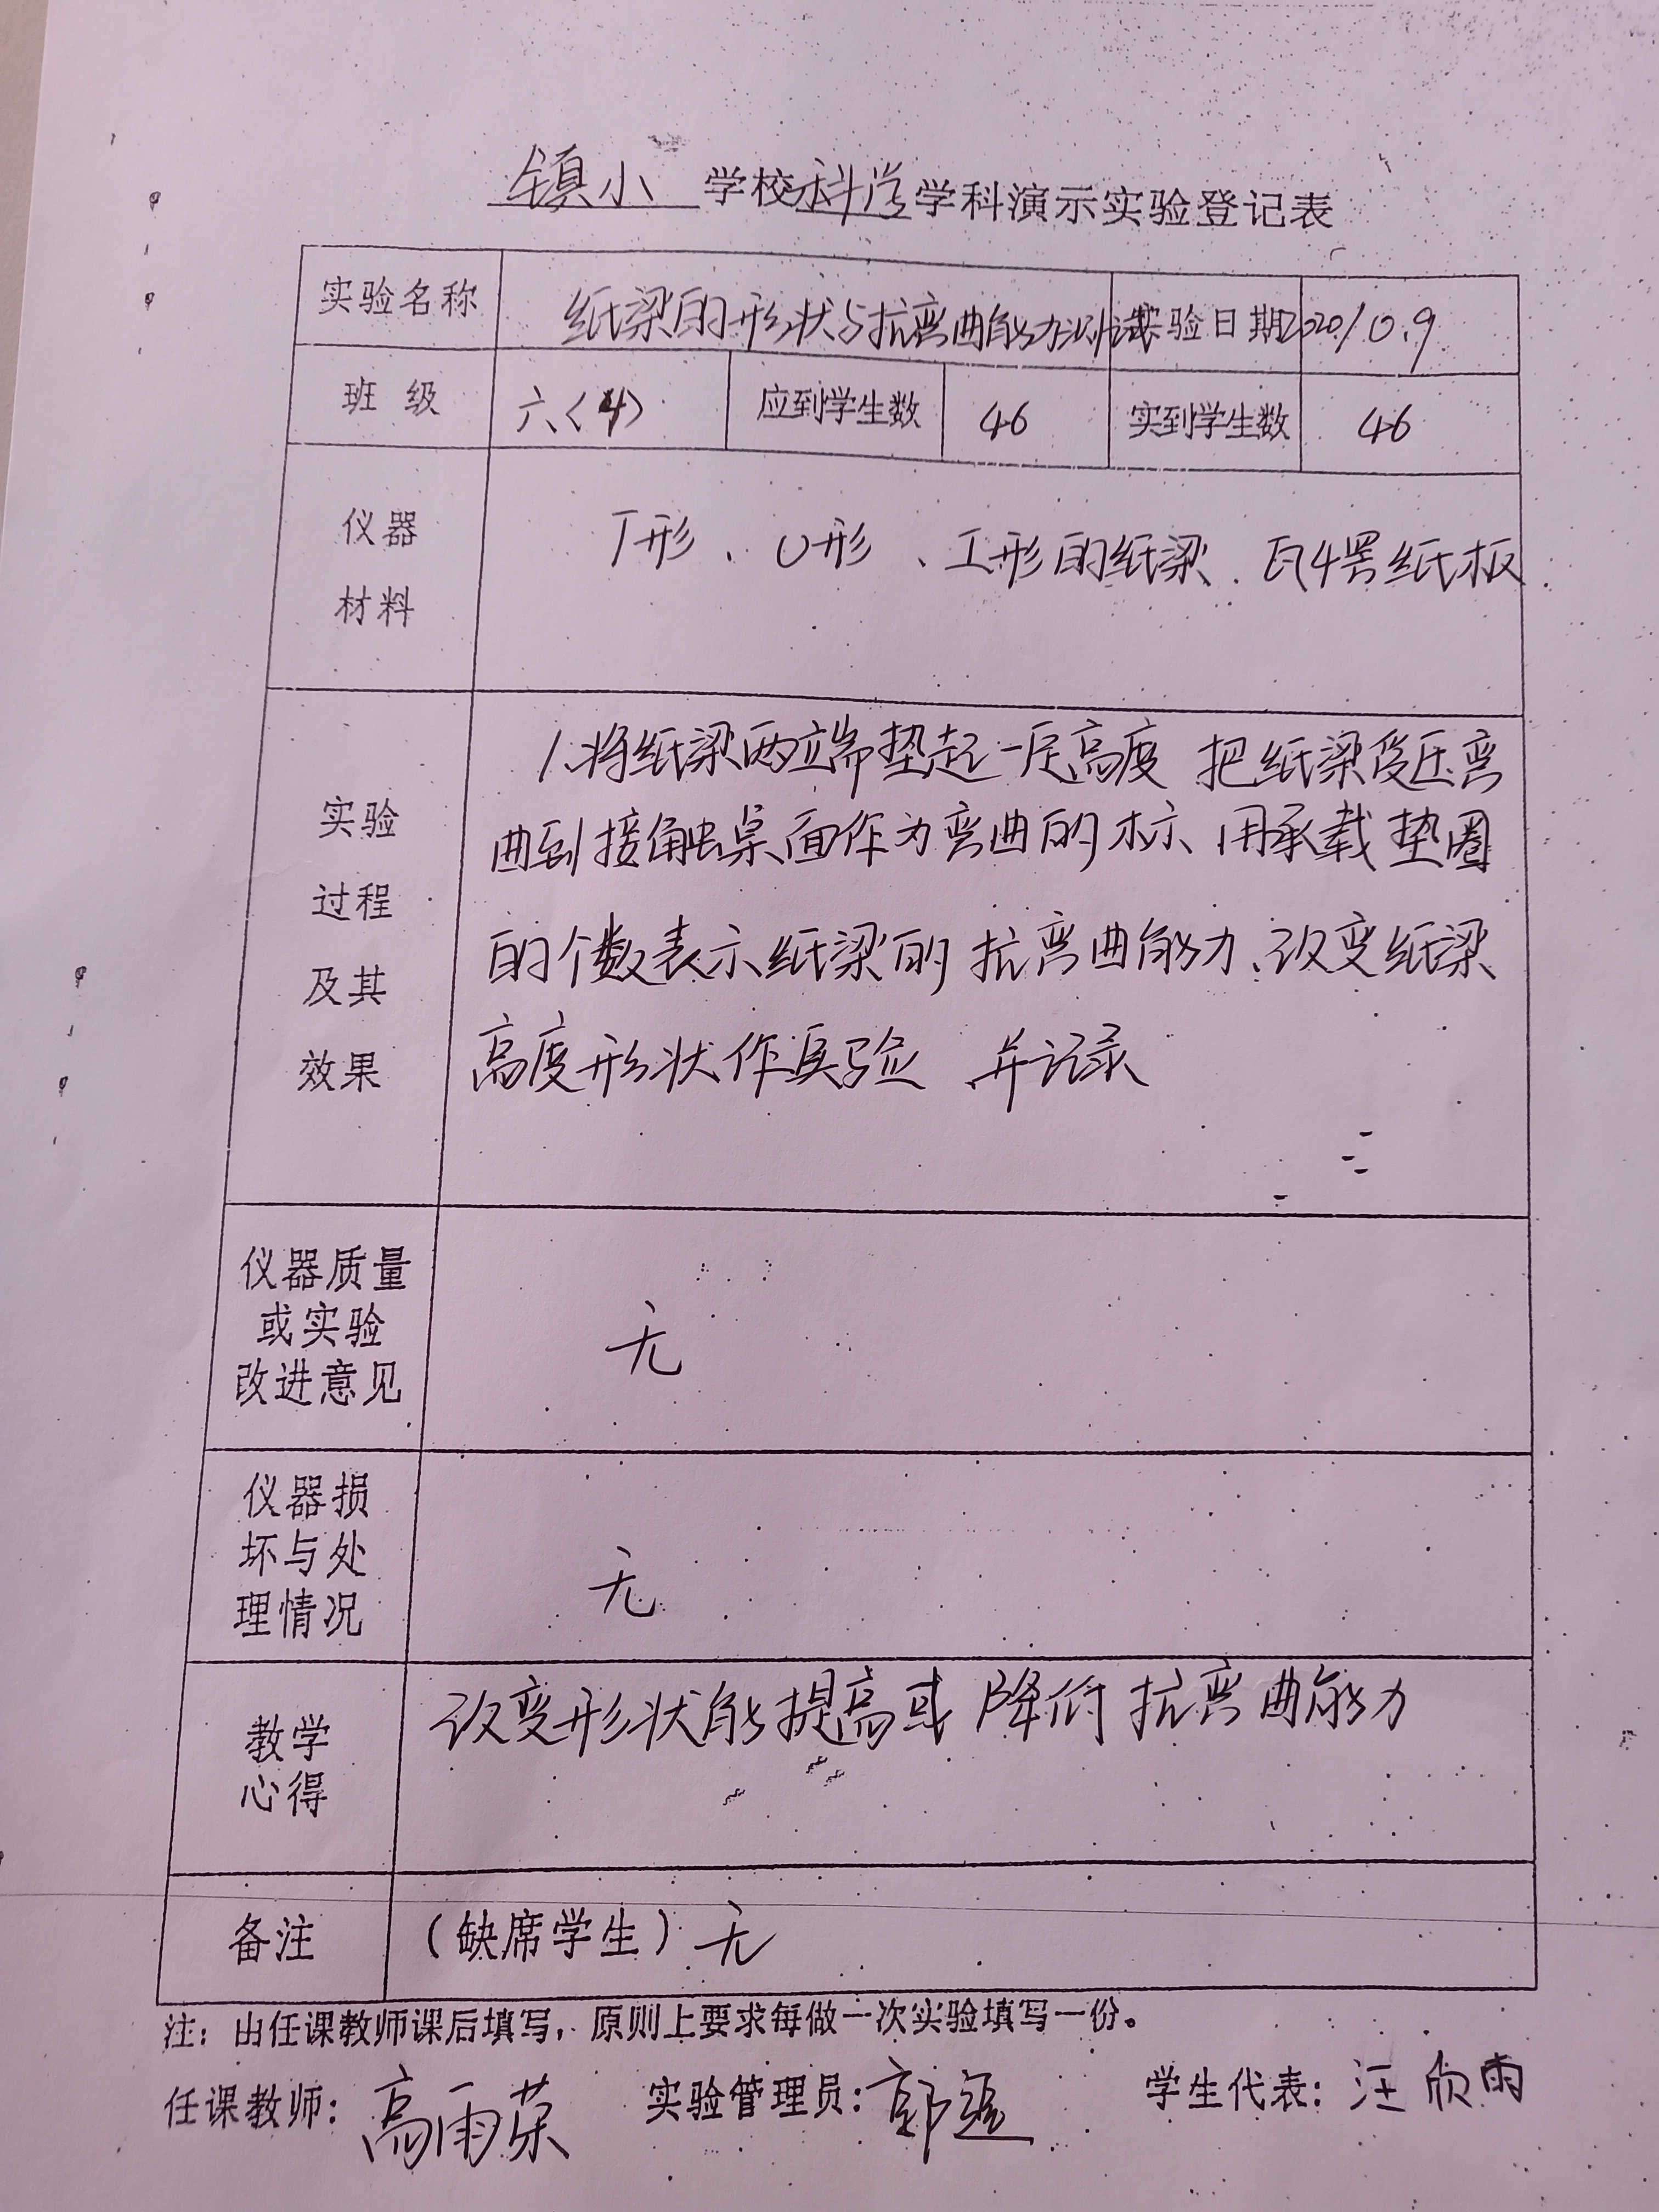 镇小 学校科学学科演示实验登记表
实验名称 纸梁的形状与抗弯曲能力测试 实验日期 2020.10.9
班 级 六〈4〉 应到学生数 46 实到学生数 46
仪器
材料
T形、U形、工形的纸梁、瓦楞纸板
实验
过程
及其
效果
1.将纸梁两端垫起一定高度 把纸梁受压弯
曲到接触桌面作为弯曲的标、用承载垫圈
的个数表示纸梁的抗弯曲能力、改变纸梁
高度形状作实验 并记录
仪器质量
或实验
改进意见
无
仪器损
坏与处
理情况
无
教学
心得
改变形状能提高或降低抗弯曲能力
备注 (缺席学生) 无
注：由任课教师课后填写，原则上要求每做一次实验填写一份。
任课教师：高雨荣 实验管理员：郭 学生代表：汪欣雨